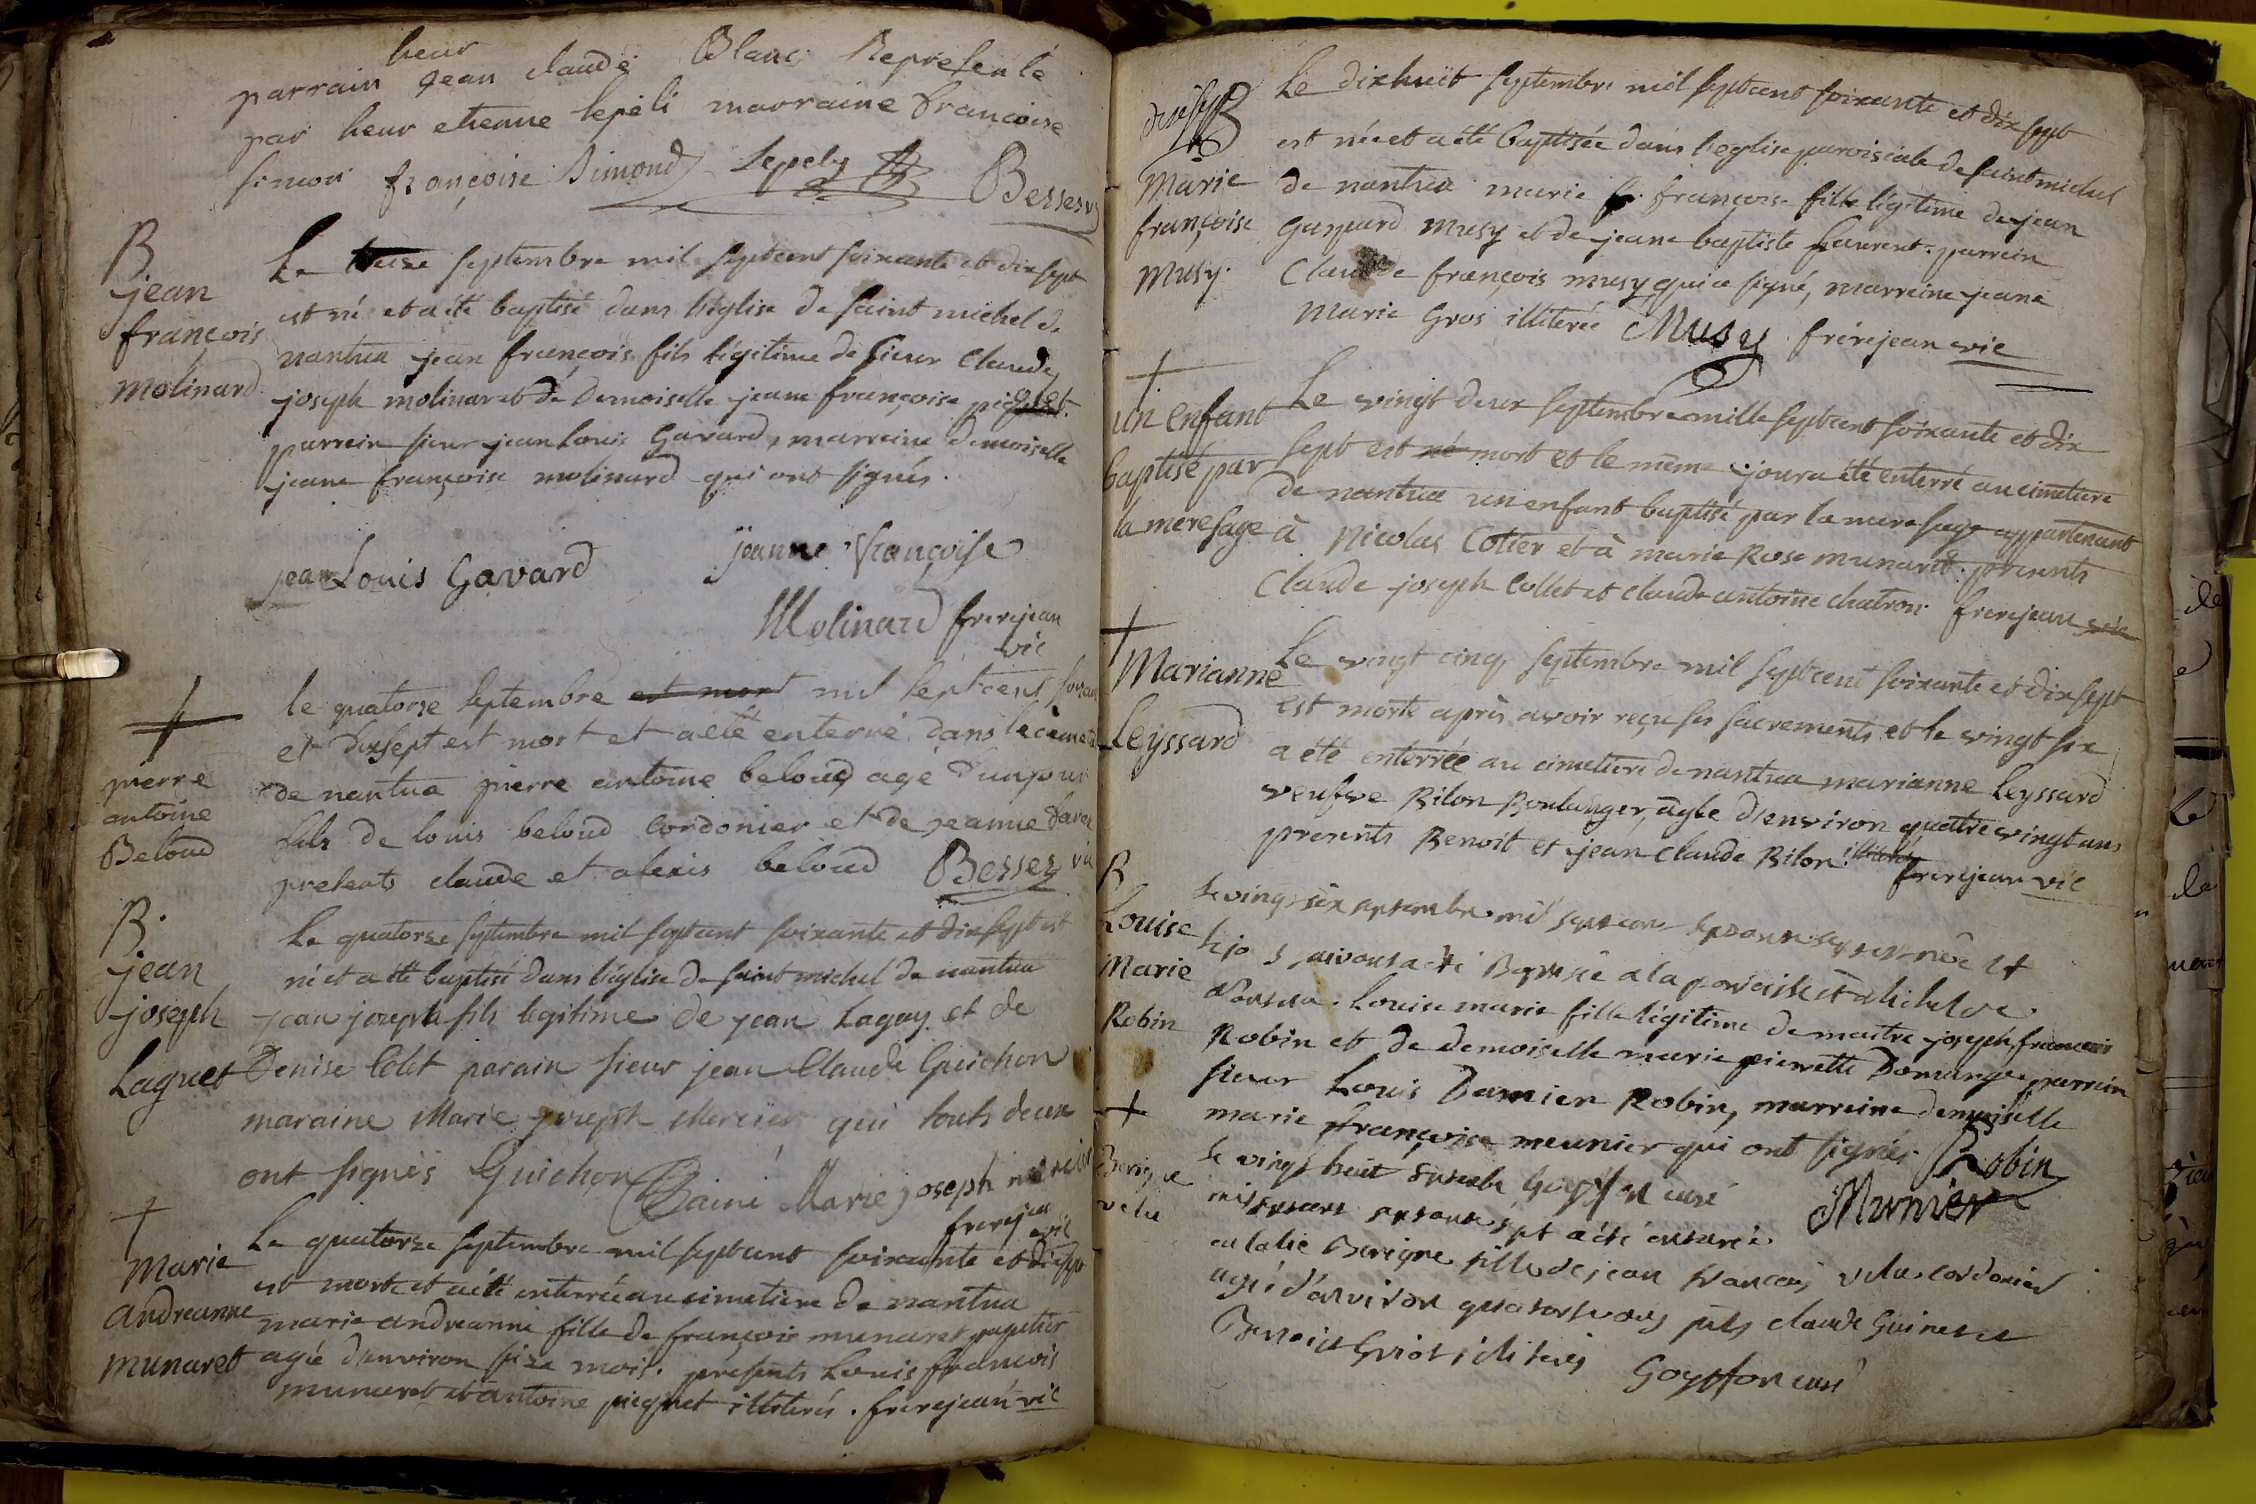 heur
parrain jean claude Blanc Represente
par heur etienne lepeli marraine francoise
simon françoise Simond Lepely Besses
B
jean
françois
molinard
Le treize septembre mil septcent soixante et dix sept
est né et a été baptisé dans l'église de saint michel de
nantua jean françois fils légitime de sieur Claude
joseph molinar et de Demoiselle jeanne françoise
parrein sieur jean Louis Gavard, marreine demoiselle
jeane françoise molinard qui ont signés.
jean Louis Gavard jeanne Françoise
Molinard frerejean
vic
pierre
antoine
Beloud
le quatorze septembre est mort mil septcent soixan
et dixsept est mort et a eté enterré dans le cimet
de nantua pierre antoine beloud agé d'un jour
fils de louis beloud Cordonier et de jeanne
presents claude et alexis beloud Besses vic
B.
jean
joseph
Laguet
Le quatorze septembre mil septcent soixante et dix sept est
né et a été baptisé dans l'église de saint michel de nantua
jean joseph fils legitime de jean Lagay et de
Denise Colet parain sieur jean Claude Guichon
maraine Marie joseph Mercier qui touts deux
ont signés Guichon Marie joseph mercier
frerejean
vic
Marie
andreanne
munaret
Le quatorze septembre mil septcent soixante et dix sept
est morte et a été enterrée au cimetiere de nantua
marie andreanne fille de françois munaret papetier
agée d'environ seize mois. presents Louis françois
munaret et antoine piquet illiterés. frerejean vic
dixsept
B
Marie
françoise
Musy.
Le dixhuit septembre mil septcent soixante et dix sept
est née et a été baptisée dans l'eglise paroissiale de saint michel
de nantua marie fr. françoise fille légitime de jean
Gaspard Musy et de jeane baptiste Laurent. parrein
Claude françois musy qui a signé, marreine jeane
Marie Gros illiterée Musy frérejean vic
un enfant
baptisé par
la mere sage
Le vingt deux septembre mille septcent soixante et dix
sept est né mort et le même jour a été enterré au cimetiere
de nantua un enfant baptisé par la mere sage appartenant
à Nicolas Cotier et à marie Rose munaret. presents
Claude joseph Collet et claude antoine chatron. frerejean vic
Marianne
Leyssard
Le vingt cinq septembre mil septcent soixante et dix sept
est morte après avoir reçu ses sacrements et le vingt six
a été enterrée au cimetiere de nantua marianne Leyssard
veufve Bilon Boulanger, agée d'environ quatre vingt ans
presents Benoit et jean Claude Bilon illiterés frerejean vic
B
Louise
Marie
Robin
Le vingt six septembre mil septcent septante sept est née et
le jo s suivant a été Baptisée a la paroisse st Michel de
Nantua. Louise marie fille légitime de maitre joseph françois
Robin et de demoiselle marie pierrette Domange parrein
sieur Louis Damien Robin, marreine demoiselle
marie françoise meunier qui ont signés. Robin
Goyffon curé Munier
velu
Le vingt huit septembre
mil septcent septante sept a été enterrée
eulalie Berigne fille de jean françois velu cordonier
agée d'environ quatorse ans pnts claude Guinet et
Benoit Griot iliterés Goyffon curé